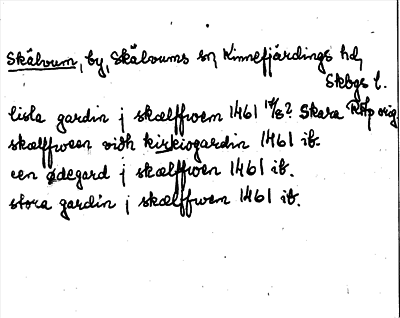 Skälvum, by, Skälvums sn, Kinnefjärdings hd,
Skbgs l.
lisla gardin j skælffwem 1461 17/8? Skara RAp orig.
skælffween vidh kirkiogardin 1461 ib.
een ødegard j skælffwen 1461 ib.
stora gardin j skælffwen 1461 ib.